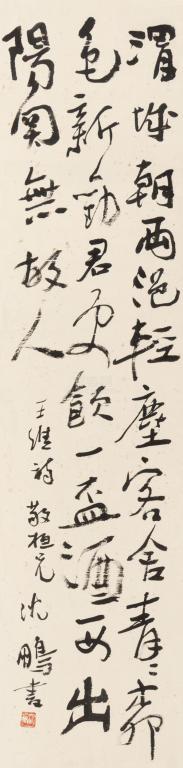 渭城朝雨浥輕塵客舍青〻柳
色新勸君更飲一盃酒西出
陽関無故人
王維詩 敬 兄 沈鵬書